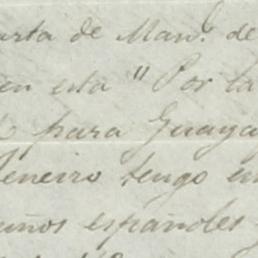 arta de Man.l de
en esta "Por la
para Guaya
eneiro tengo un
uños españoles